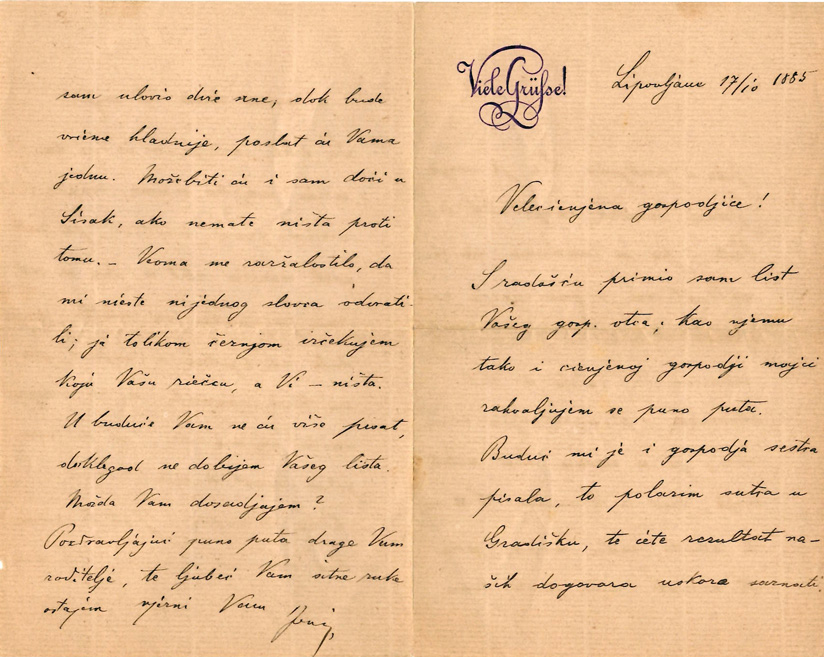 Viele Grüße!
Lipovljane 17/10 1885
Velecienjena gospodjice!
S radošću primio sam list
Vašeg gosp. otca; kao njemu
tako i cienjenoj gospodji majci
zahvaljujem se puno puta.
Buduć mi je i gospodja sestra
pisala, to polazim sutra u
Gradišku, te ćete rezultat na-
ših dogovora uskora saznati.
sam ulovio dvie, dok bude
vrieme hladnije, poslat ću Vama
jednu. Možebiti ću i sam doći u
Sisak, ako nemate ništa proti
tomu. – Veoma me ražalostilo, da
mi nieste nijednog slovca odvrati-
li; ja tolikom čežnjom izčekujem
koju Vašu riečcu, a Vi – ništa.
U buduće Vam ne ću više pisat,
doklegod ne dobijem Vašeg lista.
Možda Vam dosadjujem?
Pozdravljajući puno puta drage Vam
roditelje, te ljubeć Vam sitne ruke
ostajem vjerni Vam